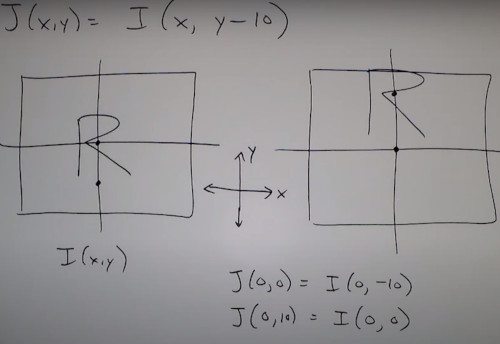 J(x,y) = I(x, y-10)
R
R
Y
X
I(x,y)
J(0,0) = I(0,-10)
J(0,10) = I(0,0)